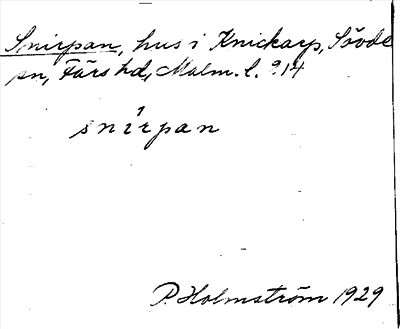 Snirpan, hus i Knickarp, Sövde
sn, Färs hd, Malm. l. 914
snirpan
P. Holmström 1929